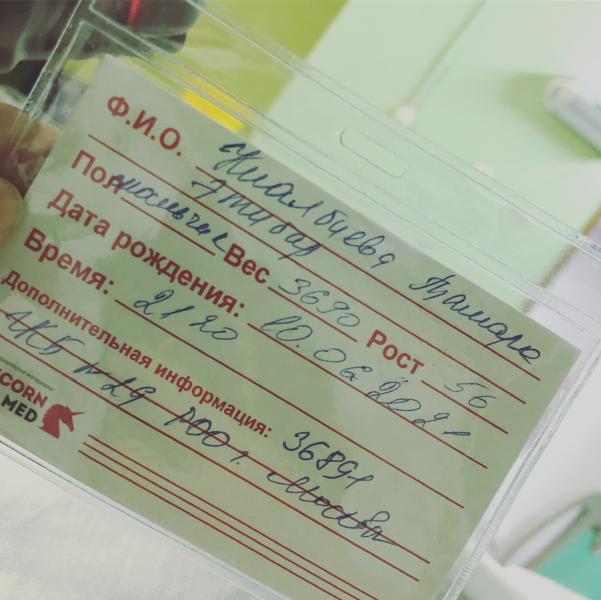 Ф.И.О. Ниалбиева Тамара
Этибар
Пол мальчик Вес 3690 Рост 56
Дата рождения: 10.06.2021
Время: 21 20
Дополнительная информация: 36891
ГКБ №29 РОО г. Москва
ICORN
MED